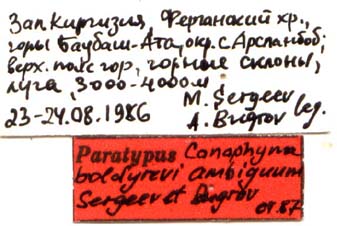 Зап. Киргизия, Ферганский хр.,
горы Баубаш-Ата, окр. с. Арсланбоб,
верх. пояс гор, горные склоны,
луга, 3000-4000м
23-24.08.1986 M. Sergeev
A. Bugrov leg.
Paratypus Conophyma
boldyrevi ambiguum
Sergeev et Bugrov
01.87